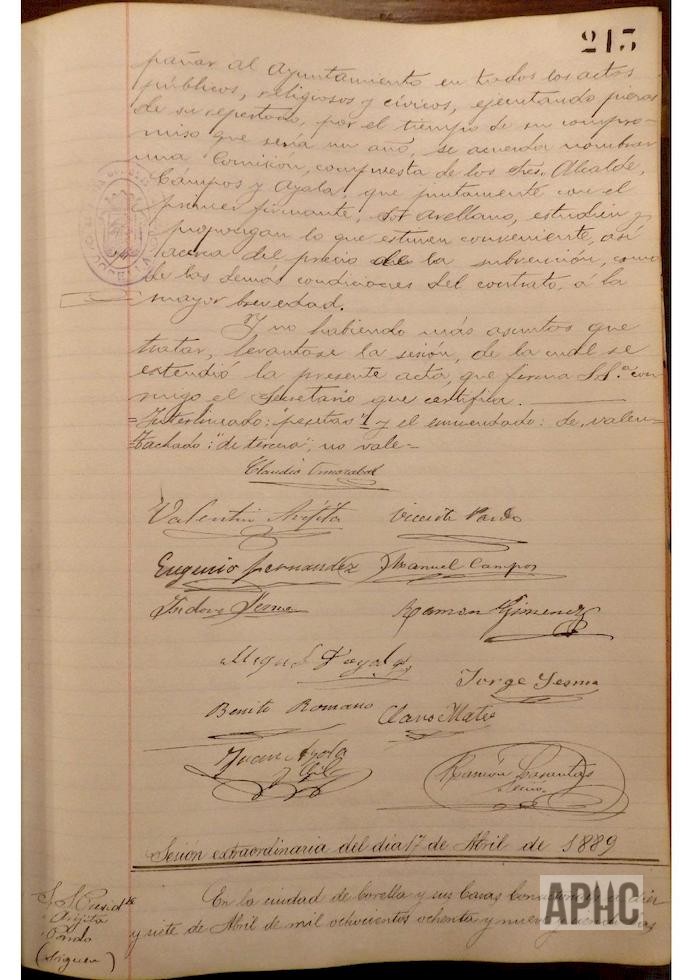 213
pañar al Ayuntamiento en todos los actos
públicos, religiosos y cívicos, ejecutando piezas
de su repertorio, por el tiempo de su compro-
miso que sería un año, se acuerda nombrar
una Comisión, compuesta de los Sres. Alcalde,
Campos y Ayala, que juntamente con el
primer firmante, Sor Arellano, estudien y
propongan lo que estimen conveniente, así
acerca del precio de la subvención, como
de las demás condiciones del contrato, á la
mayor brevedad.
Y no habiendo más asuntos que
tratar, levantase la sesión, de la cual se
extendió la presente acta, que firma S.S.ª con-
migo el Secretario que certifica.
=Interlineado: "pesetas" y el enmendado: de, valen=
Tachado: "de tercero", no vale=
Claudio
Valentin Arijita Vicente Pardo
Eugenio Fernandez Manuel Campos
Isidoro Sesma Ramon Gimenez
Miguel
Jorge Sesma
Benito Romano Clavo Mateo
Juan Ayala
y Gil
Ramón
Srio.
Sesión extraordinaria del dia 17 de Abril de 1889
S.S. Presid.te
Arijita
Pardo
(Siguen)
En la ciudad de Corella y sus Casas Consistoriales
y siete de Abril de mil ochocientos ochenta y nueve
APHC